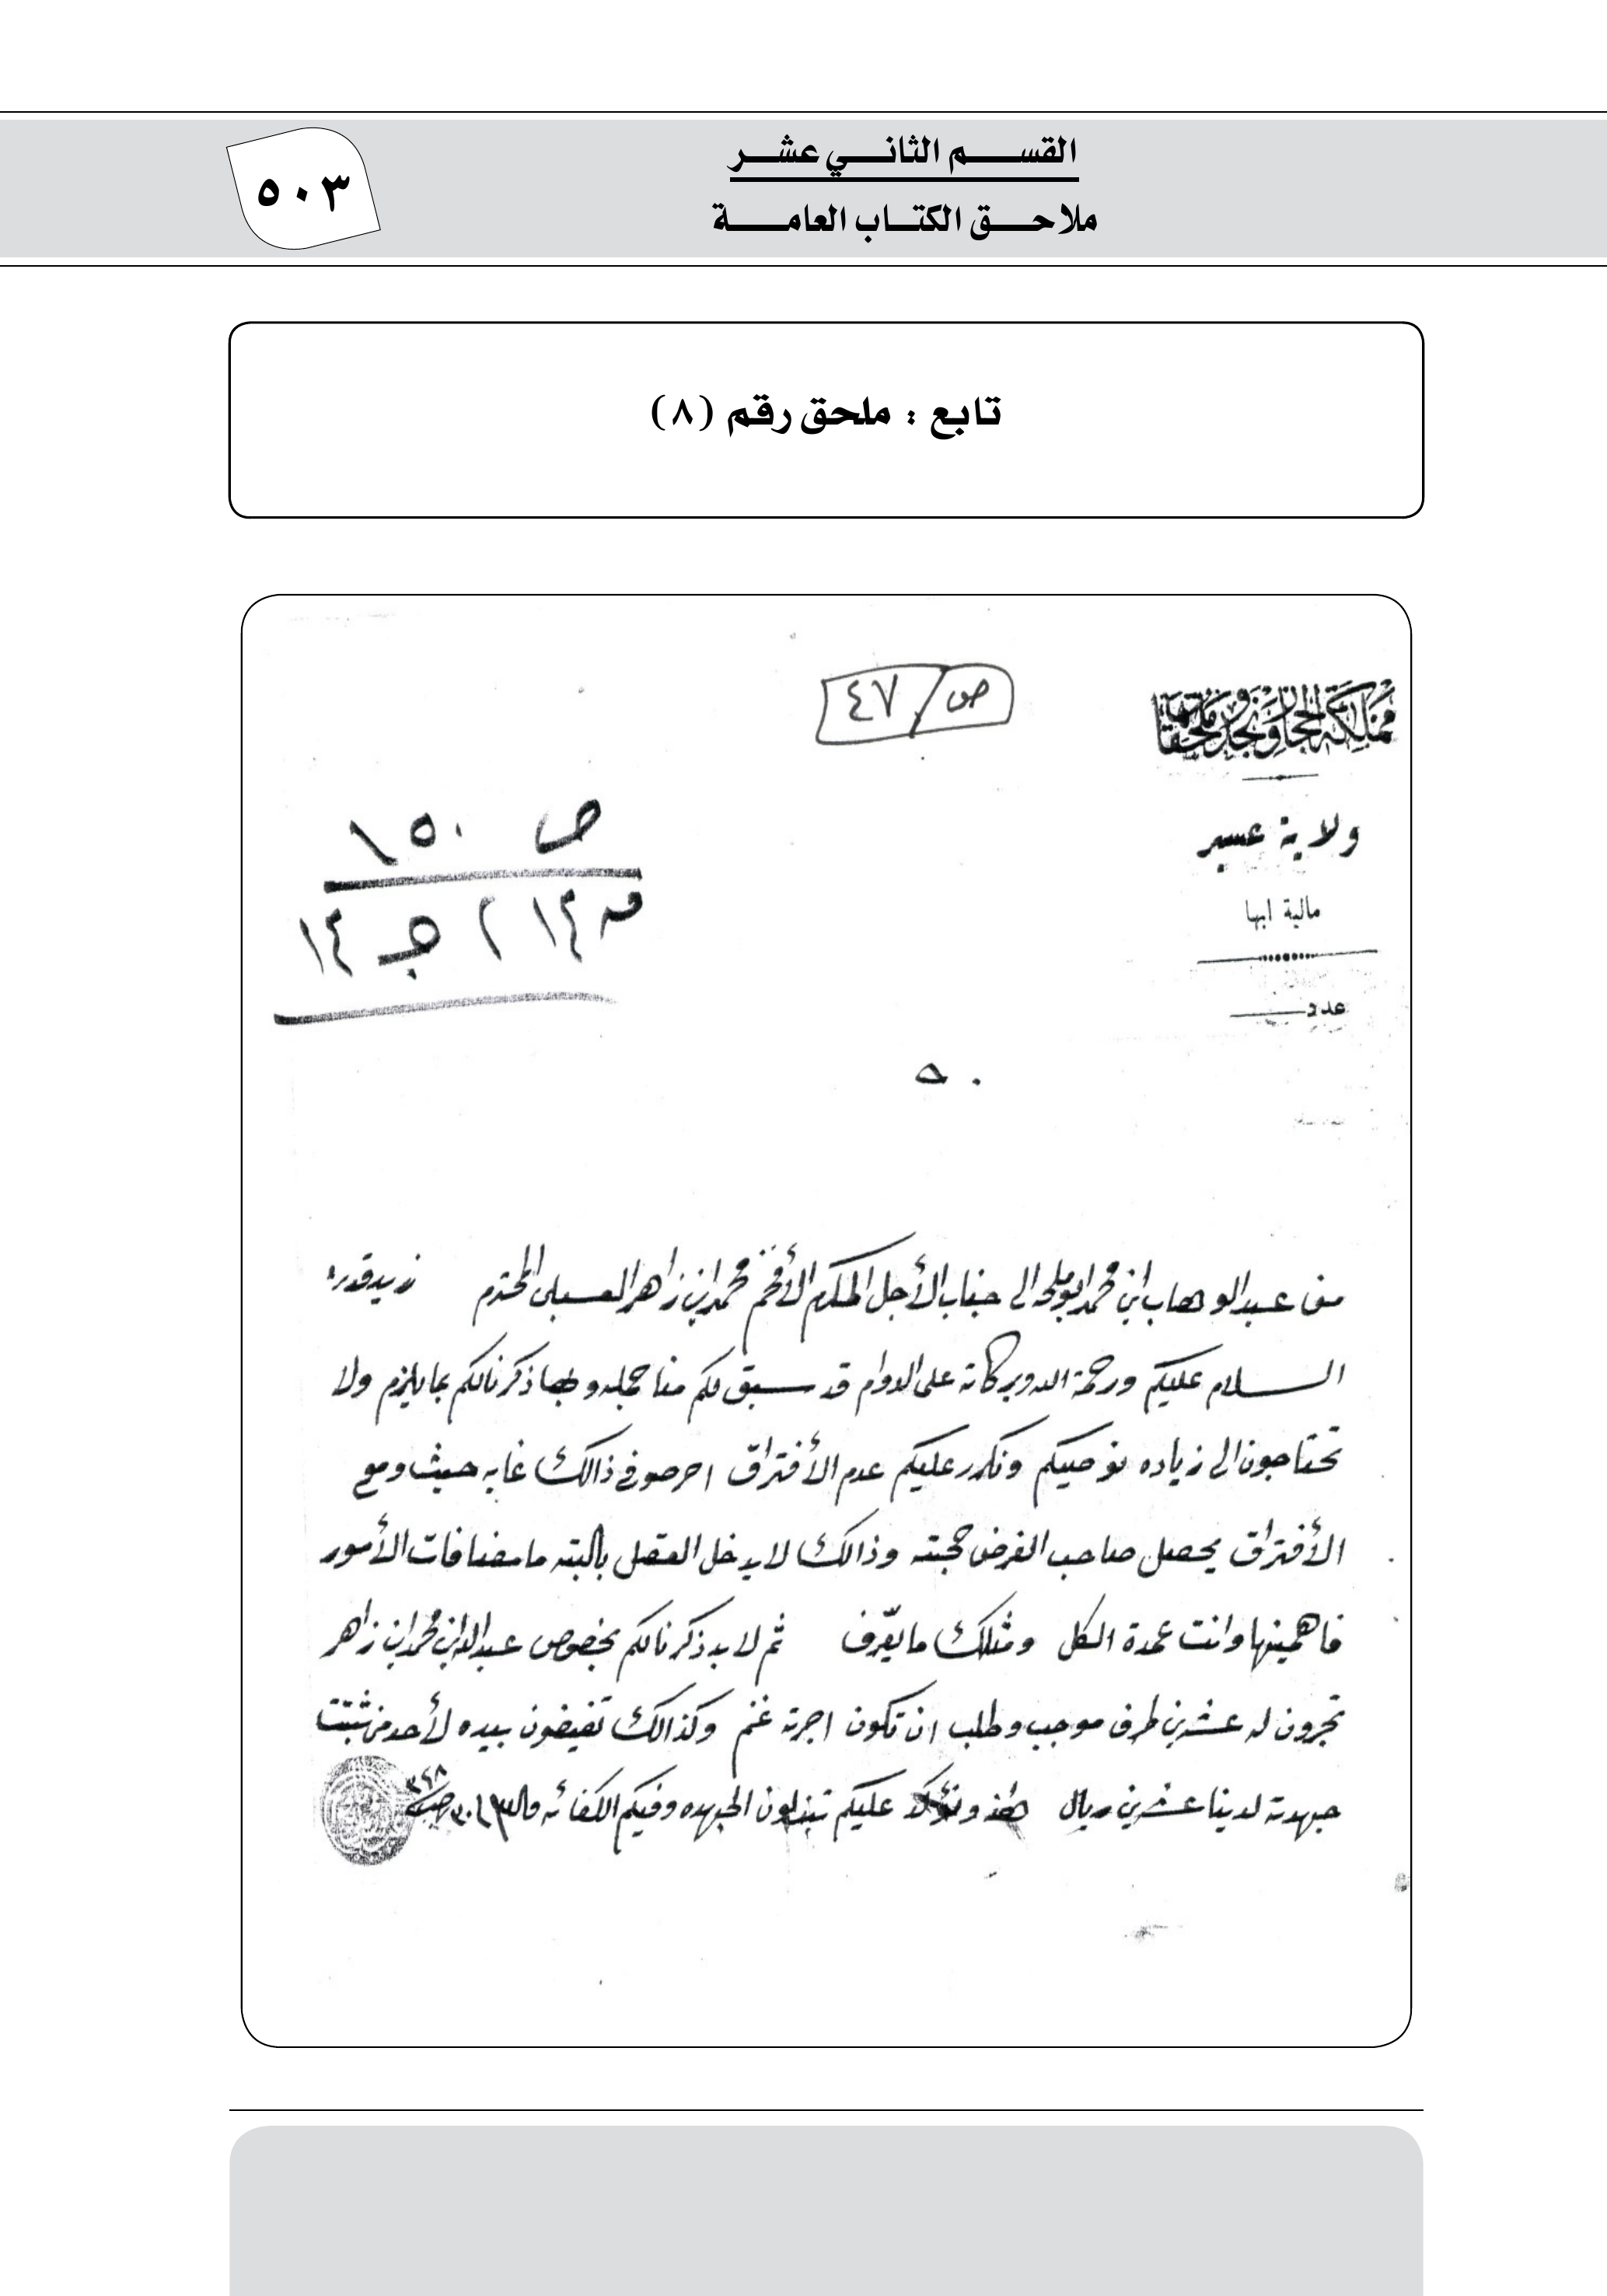 القسم الثاني عشر
ملاحق الكتاب العامة
٥٠٣
تابع : ملحق رقم (٨)
ص/٤٧
مملكة الحجاز ونجد وملحقاتها
ولاية عسير
مالية ابها
عدد
ص ١٥٠
من عبدالوهاب ابن محمد ابوملحه الى جناب الأجل المكرم الأفخم محمد ابن زاهر العسبلي المحترم زيد قدره
السلام عليكم ورحمة الله وبركاته على الدوام قد سبق لكم منا جمله وبها ذكرنا لكم بما يلزم ولا
تحتاجون الى زياده نوصيكم ونكرر عليكم عدم الأفتراق احرصو في ذالك غايه حيث ومع
الأفتراق يحصل صاحب الغرض حجته وذالك لا يدخل العقل بالبته ما مضافات الأمور
فاهمينها وانت عمدة الكل ومثلك ما يعرف ثم لابد ذكرنا لكم بخصوص عبدالله ابن محمد ابن زاهر
تجرون له عشرين طرف موجب وطلب ان تكون اجرته غنم وكذالك تفيضون بيده لأحد من ثبتت
جهدته لدينا عشرين ريال هذ ونؤكد عليكم تبذلون الجهده وفيكم الكفائه
٣٤٨